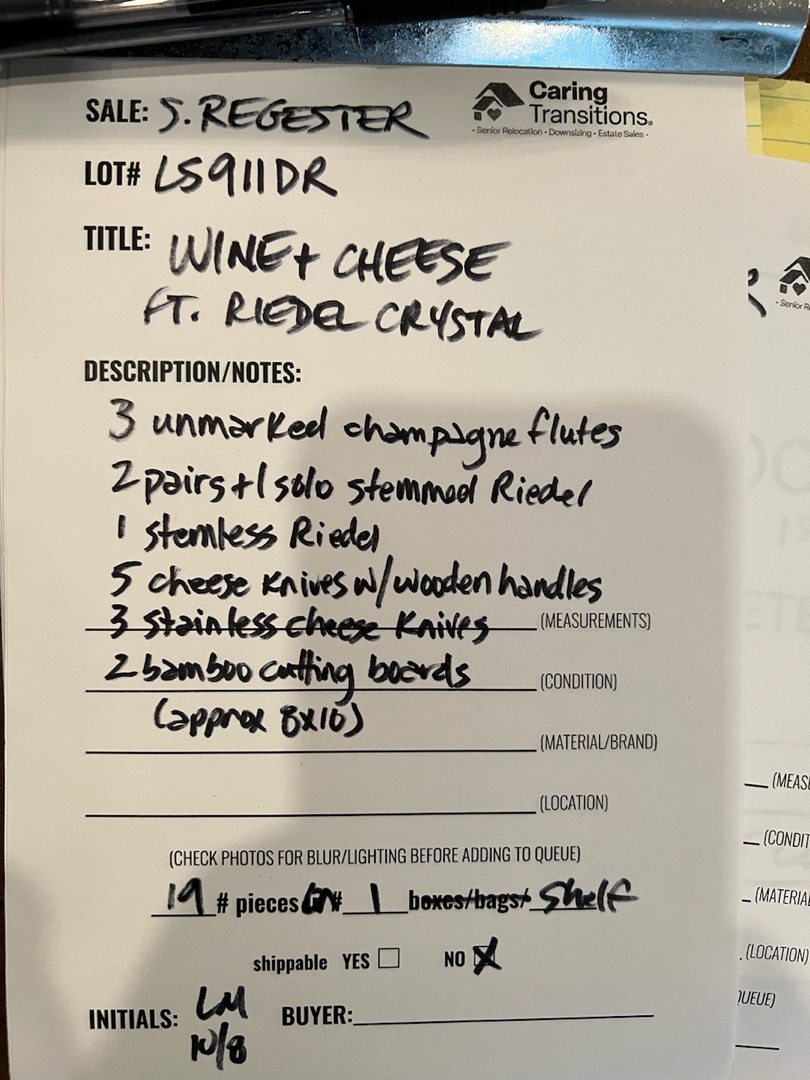 SALE: S. REGESTER
Caring
Transitions.
• Senior Relocation • Downsizing • Estate Sales •
LOT# LS911DR
TITLE: WINE + CHEESE
FT. RIEDEL CRYSTAL
DESCRIPTION/NOTES:
3 unmarked champagne flutes
2 pairs + 1 solo stemmed Riedel
1 stemless Riedel
5 cheese knives w/ wooden handles
3 stainless cheese knives (MEASUREMENTS)
2 bamboo cutting boards (CONDITION)
(approx 8x10)
(MATERIAL/BRAND)
(LOCATION)
(CHECK PHOTOS FOR BLUR/LIGHTING BEFORE ADDING TO QUEUE)
19 # pieces # 1 boxes/bags/ Shelf
shippable YES NO X
INITIALS: LM BUYER:
10/8
• Senior R
(MEAS
(CONDIT
(MATERIA
(LOCATION)
QUEUE)